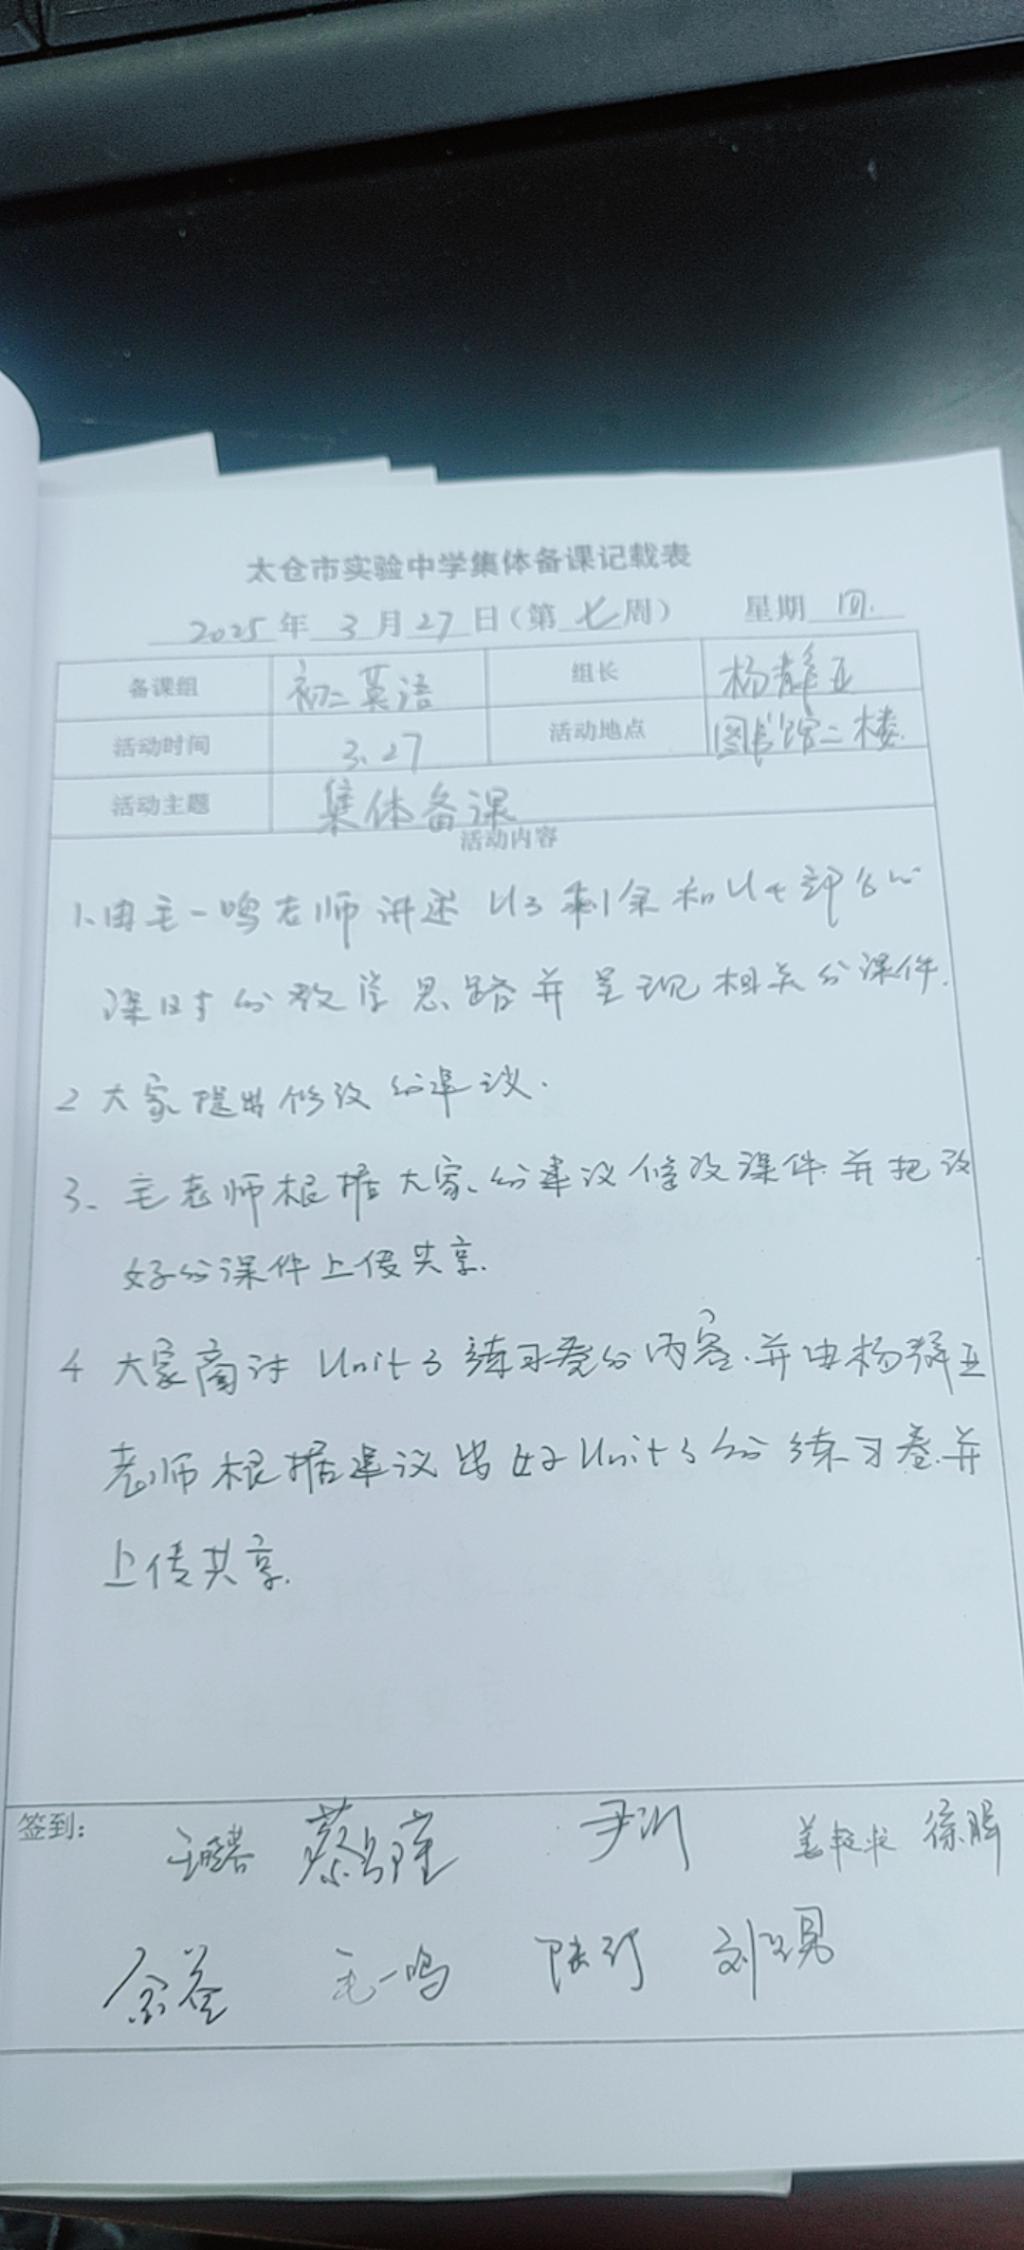 太仓市实验中学集体备课记载表
2025年 3月27日（第七周） 星期 四.
备课组 初二英语 组长 杨静亚
活动时间 3.27 活动地点 图书馆二楼.
活动主题 集体备课
活动内容
1.由毛一鸣老师讲述 U3 剩余和U4部分
课时的教学思路并呈现相关的课件.
2 大家提出修改的建议.
3、毛老师根据大家的建议修改课件.并把改
好的课件上传共享.
4 大家商讨 Unit 3 练习卷的内容.并由杨静亚
老师根据建议出好Unit 3的练习卷.并
上传共享.
签到：
蔡 尹 徐
毛一鸣 刘